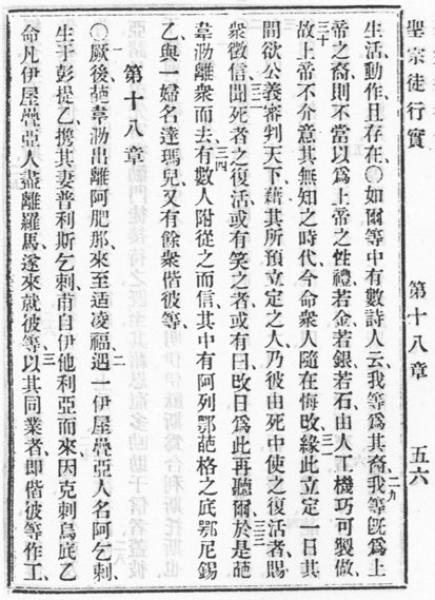 聖宗徒行實 第十八章 五六
生活動作且存在、〇如爾等中有數詩人云、我等爲其裔、二九我等既爲上
帝之裔則不當以爲上帝之性體若金若銀若石由人工機巧可製倣、
三十故上帝不介意其無知之時代今命衆人隨在悔改、三一緣此立定一日其
間欲公義審判天下藉其所預立定之人乃彼由死中使之復活者賜
衆徵信、三二聞死者之復活或有笑之者或有曰改日爲此再聽爾、三三於是葩
韋泐離衆而去、三四有數人附從之而信、其中有阿列鄂葩格之底鄂尼錫
乙與一婦名達瑪兒又有餘衆偕彼等、
第十八章
〇一厥後葩韋泐出離阿肥那來至适凌福、二遇一伊屋疊亞人名阿乞剌
生于彭提乙、携其妻普利斯乞剌甫自伊他利亞而來、因克剌烏底乙
命凡伊屋疊亞人盡離羅馬、遂來就彼等、三以其同業者、即偕彼等作工、